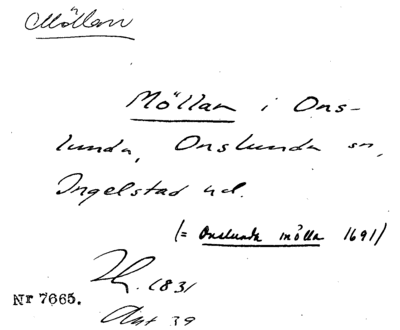 Möllan
Möllan i Ons-
lunda, Onslunda sn,
Ingelstad hd.
(= Onslunda mölla 1691)
1831
Nr 7665.
39